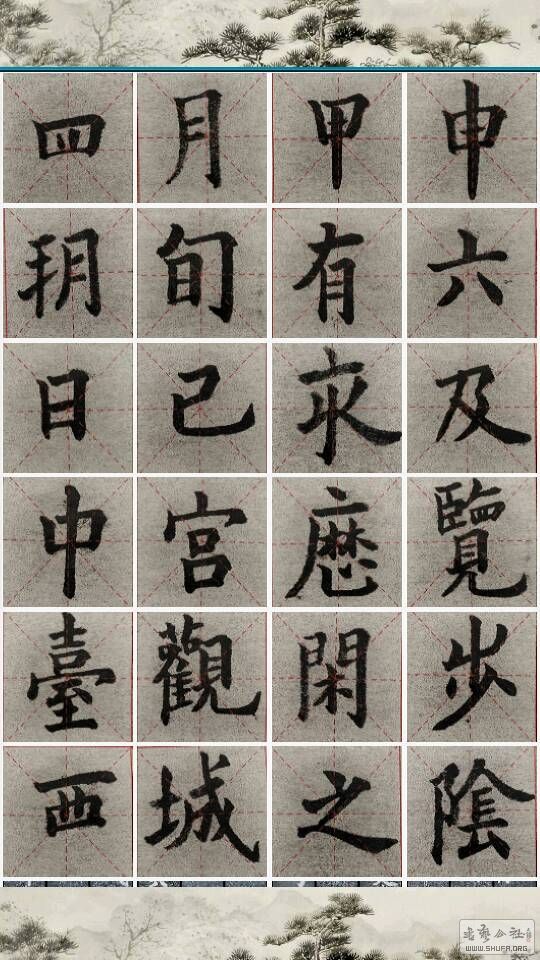 四月甲申
朔旬有六
日己亥及
中宮歷覽
臺觀閑步
西城之陰
書藝公社
WWW.SHUFA.ORG